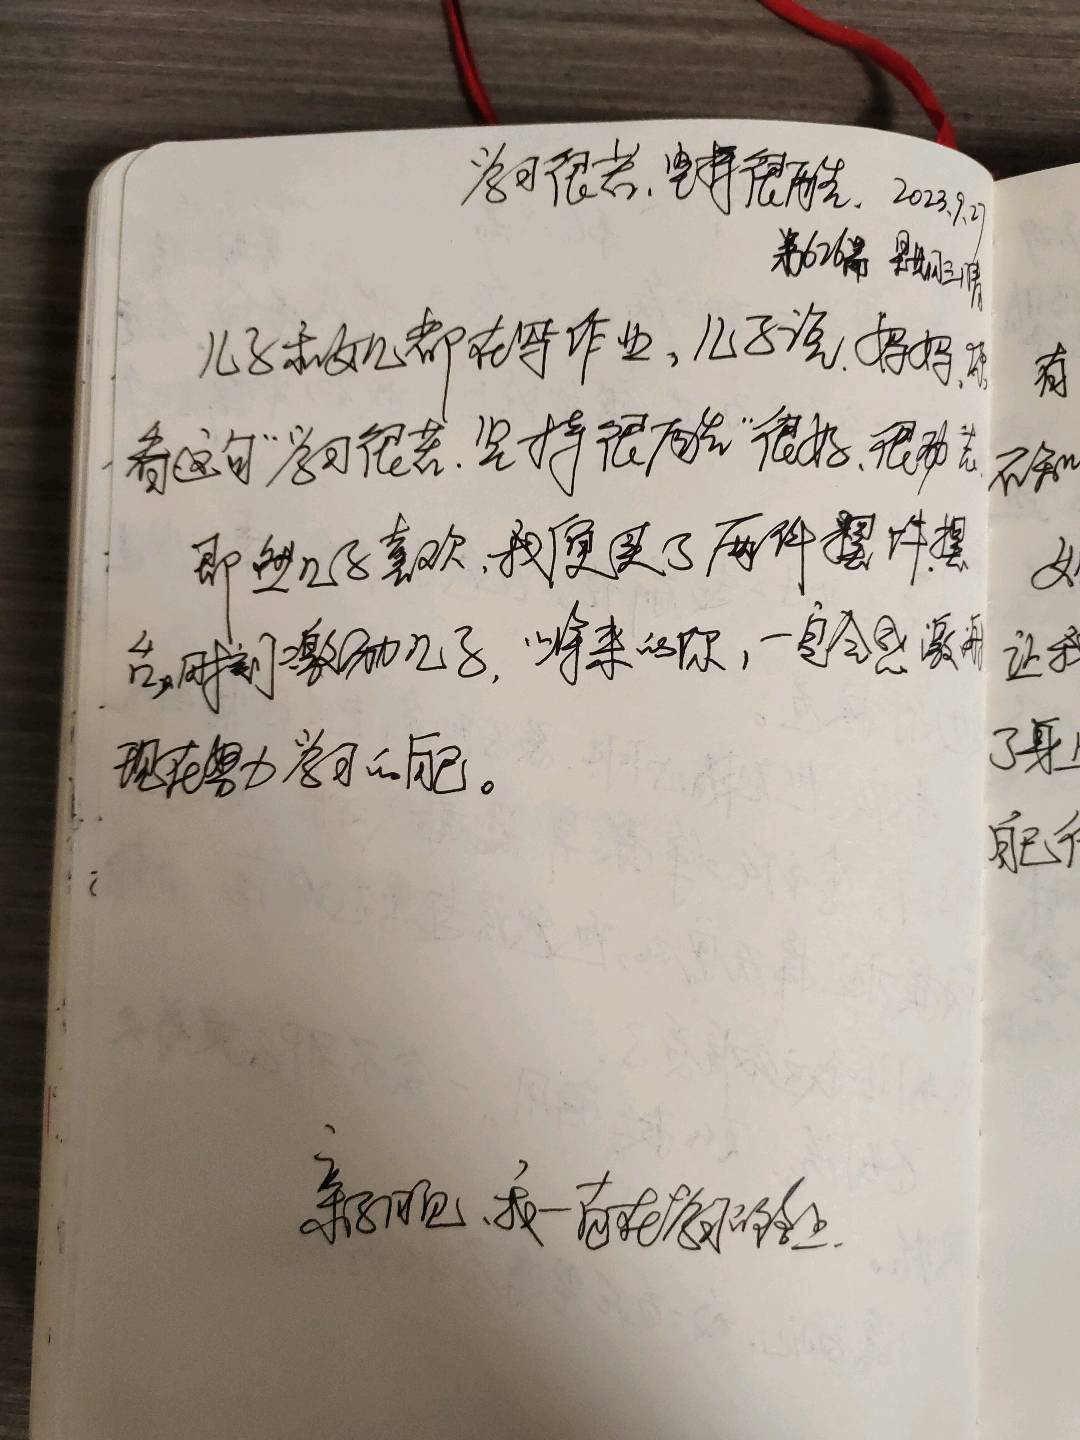 学习很苦,坚持很酷. 2023.9.27
第626篇 星期三晴
儿子和女儿都在写作业,儿子说.妈妈,你
看这句"学习很苦.坚持很酷"很好、很励志.
即然儿子喜欢,我便买了两件摆件.摆
台,时刻激励儿子,将来的你,一定会感激
现在努力学习的自己。
亲子日记、我一直在学习的路上.
有
不知
女
让我
了身上
自己